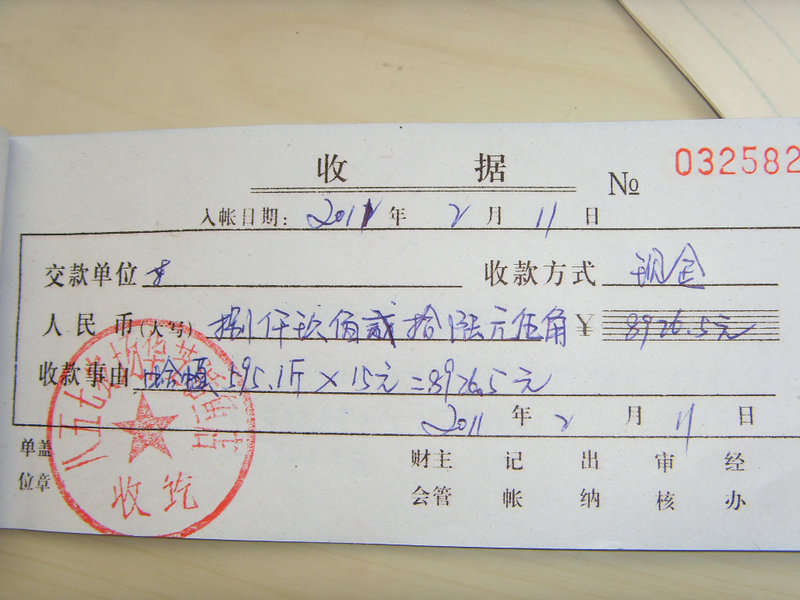 收 据
№ 032582
入帐日期: 2011 年 2 月 11 日
交款单位 收款方式 现金
人民币(大写) 捌仟玖佰贰拾陆元伍角 ¥ 8926.5元
收款事由 595.1斤×15元=8926.5元
2011 年 2 月 11 日
单位盖章 财会主管 记帐 出纳 审核 经办
八五七
收讫